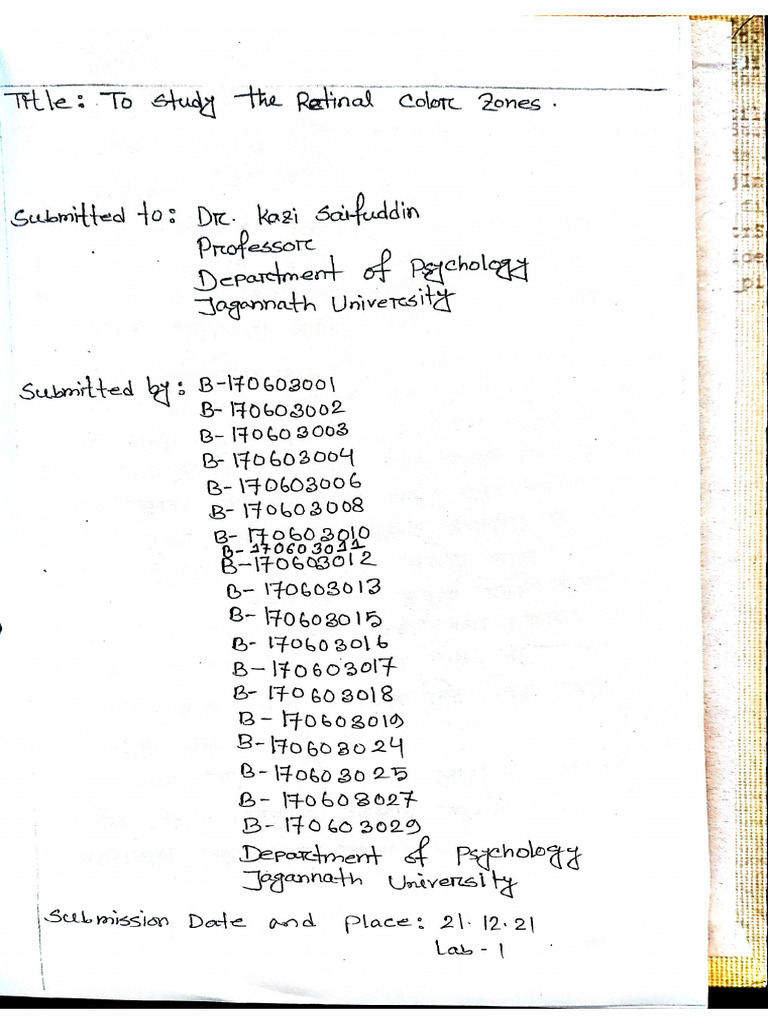 Title: To study the Retinal Color Zones.
Submitted to: Dr. Kazi Saifuddin
Professor
Department of Psychology
Jagannath University
Submitted by: B-170603001
B-170603002
B-170603003
B-170603004
B-170603006
B-170603008
B-170603010
B-170603011
B-170603012
B-170603013
B-170603015
B-170603016
B-170603017
B-170603018
B-170603019
B-170603024
B-170603025
B-170603027
B-170603029
Department of Psychology
Jagannath University
Submission Date and place: 21.12.21
Lab-1